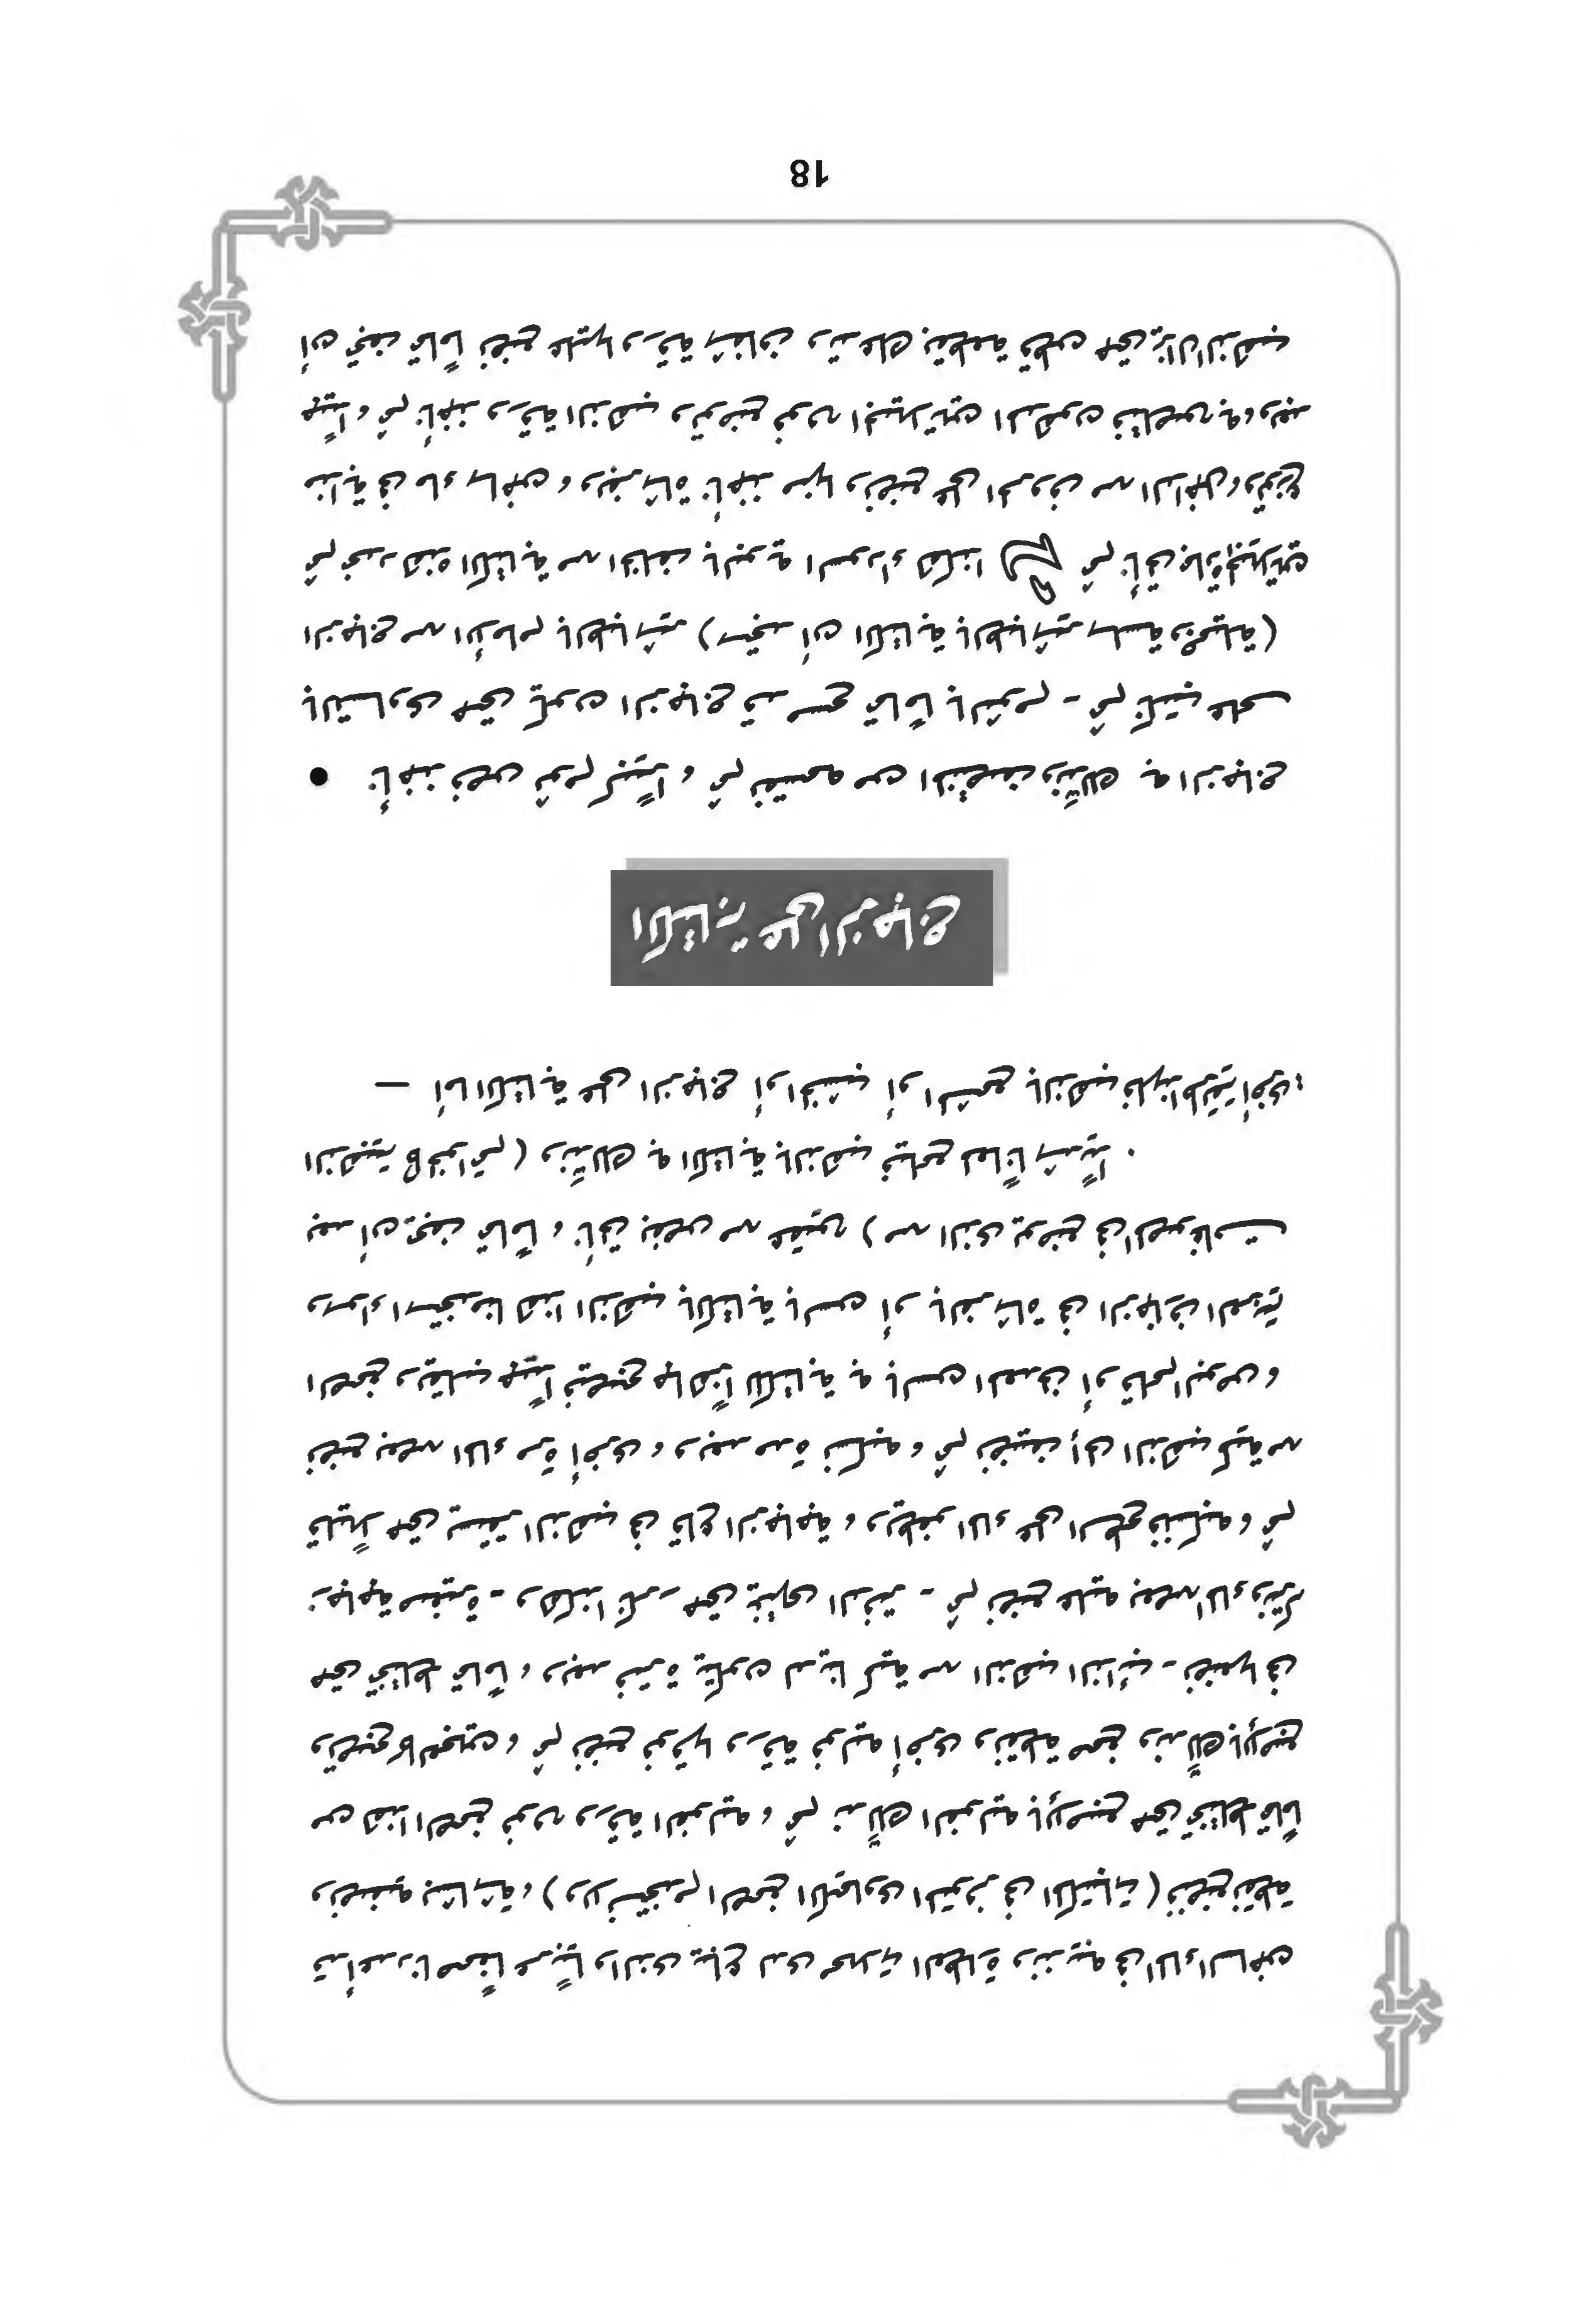 قد أعددنا صمغاً عربياً والذى يباع لدى محلات العطارة ونذيبه فى الماء الساخن
ونصفيه بشاشة ، ( ولا نستخدم الصمغ الكيماوى المتوفر فى المكتبات ) فنضع نقطة
من هذا الصمغ فوق ورقة الفوليه ، ثم ندلك الفوليه بالإصبع حتى تختلط تماماً
وتصبح كالعجين ، ثم نضع فوقها ورقة فوليه أخرى ونقطة صمغ وندلك بالإصبع
حتى تختلط تماماً ، وبعد فترة يتكون لدينا كمية من الذهب الذائب - نضعها فى
زجاجة صغيرة - وهكذا نكرر حتى ينتهى الدفتر - ثم نضع عليه بعض الماء ونتركه
قليلاً حتى يستقر الذهب فى قاع الزجاجة ، ويطفو الماء على السطح فنسكبه ، ثم
نضع بعض الماء مرة أخرى ، وبعد مدة نسكبه ، ثم نضيف إلى الذهب كمية من
الصمغ ويقلب جيداً فيصبح جاهزاً للكتابة به بالسن المعدن أو قلم البوص ،
وسواء استخدمنا هذا الذهب بالكتابة بالسن أو بالفرشاة فى الزخارف العربية
بعد أن يجف تماماً ، نأتى بفص من عقيق ( من الذى يوضع فى المصوغات
الذهبية كالخواتم ) وندلك به الكتابة بالذهب فيلمع لمعاناً شديداً .
— أما الكتابة على الزجاج أو الخشب أو الشمع بالذهب فلها طريقة أخرى :
الكتابة على الزجاج
● نأخذ فص ثوم كبيراً ، ثم نقسمه من المنتصف وندلك به الزجاج
بالتساوى حتى يكون الزجاج قد مسح تماماً بالثوم - ثم نكتب على
الزجاج من الأمام بالطباشير ( ستجد أن الكتابة بالطباشير سلسة وجميلة )
ثم نحدد هذه الكتابة من الخلف بالبوية السوداء هكذا ثم نأتى بمادة الجيلاتين
مذابة فى ماء ساخن ، وبفرشاة نأخذ منها ونضع على الحروف من الداخل ، ونوزع
جيداً ، ثم نأخذ ورقة الذهب وتوضع فوق الجيلاتين المدهون فتلصق به ، وبعد
أن تجف تماماً نضع عليها ورقة شفاف وندعك بقطعة قطن حتى يزال الذهب
18